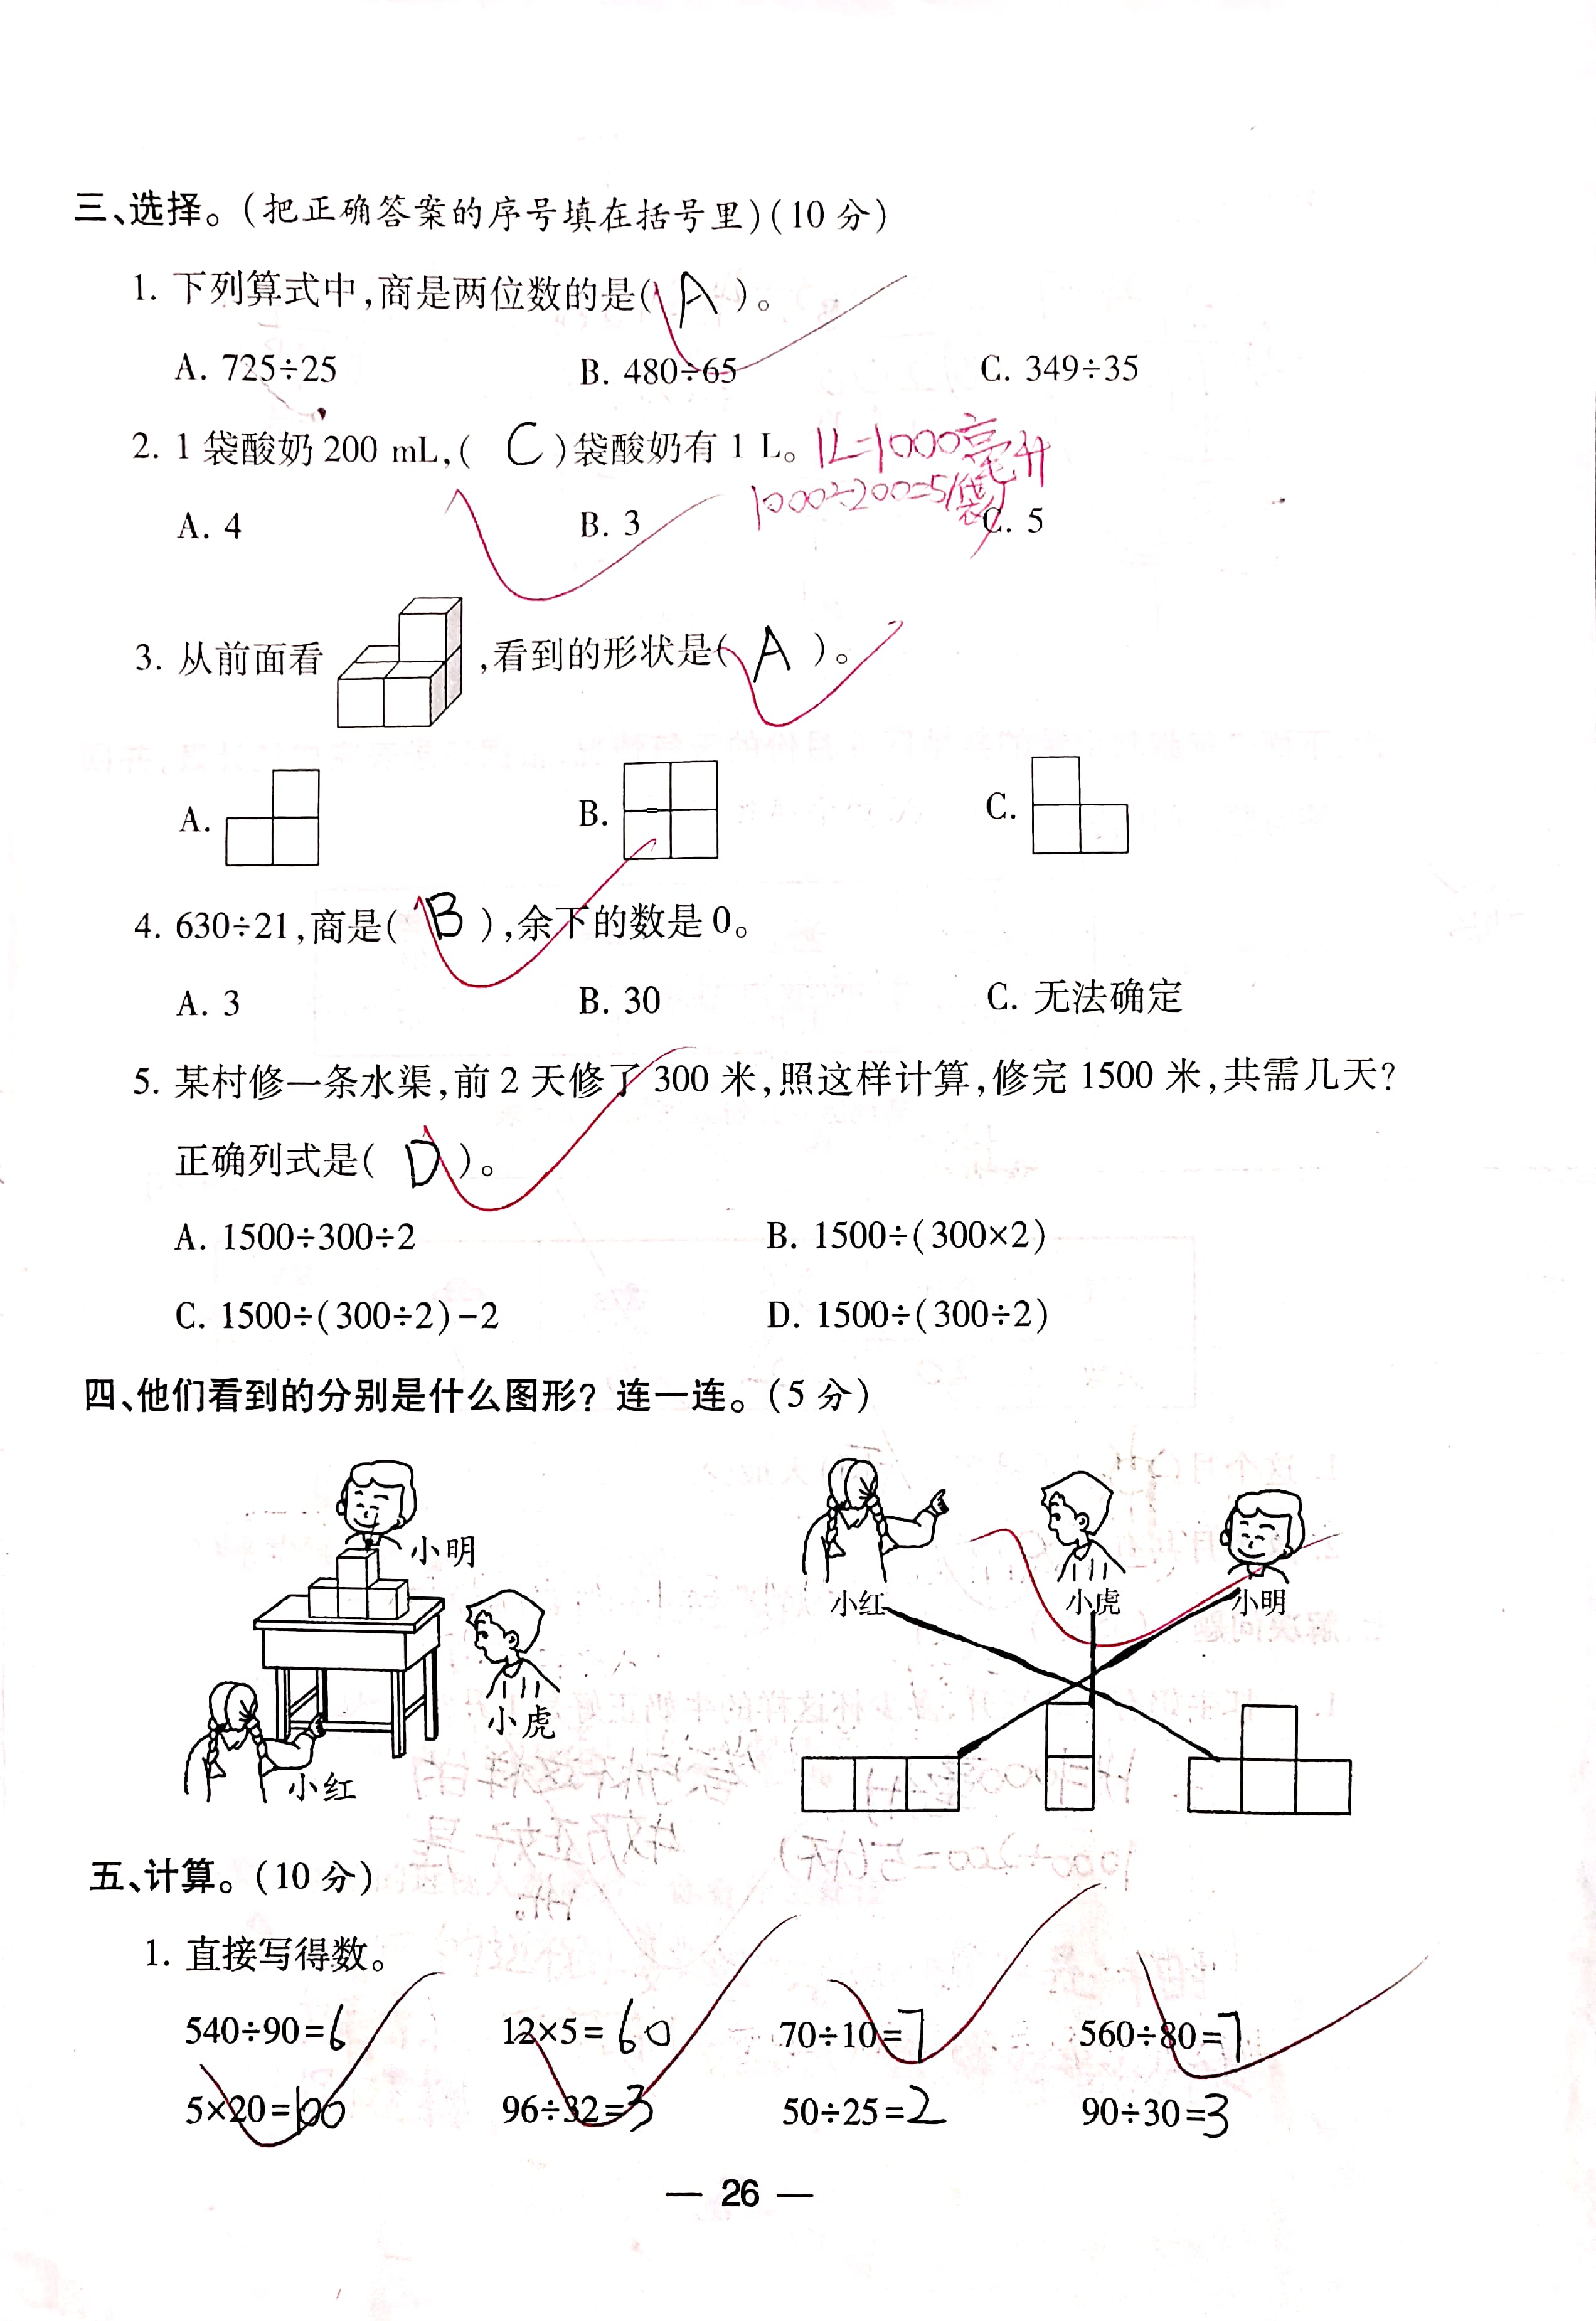 三、选择。(把正确答案的序号填在括号里)(10 分)
1. 下列算式中,商是两位数的是( A )。
A. 725÷25 B. 480÷65 C. 349÷35
2. 1 袋酸奶 200 mL,( C )袋酸奶有 1 L。 1L=1000毫升
1000÷200=5(袋)
A. 4 B. 3 C. 5
3. 从前面看 ,看到的形状是( A )。
A. B. C.
4. 630÷21,商是( B ),余下的数是 0。
A. 3 B. 30 C. 无法确定
5. 某村修一条水渠,前 2 天修了 300 米,照这样计算,修完 1500 米,共需几天?
正确列式是( D )。
A. 1500÷300÷2 B. 1500÷(300×2)
C. 1500÷(300÷2)-2 D. 1500÷(300÷2)
四、他们看到的分别是什么图形? 连一连。(5 分)
小明
小虎
小红
小红 小虎 小明
五、计算。(10 分)
1. 直接写得数。
540÷90=6 12×5=60 70÷10=7 560÷80=7
5×20=100 96÷32=3 50÷25=2 90÷30=3
— 26 —